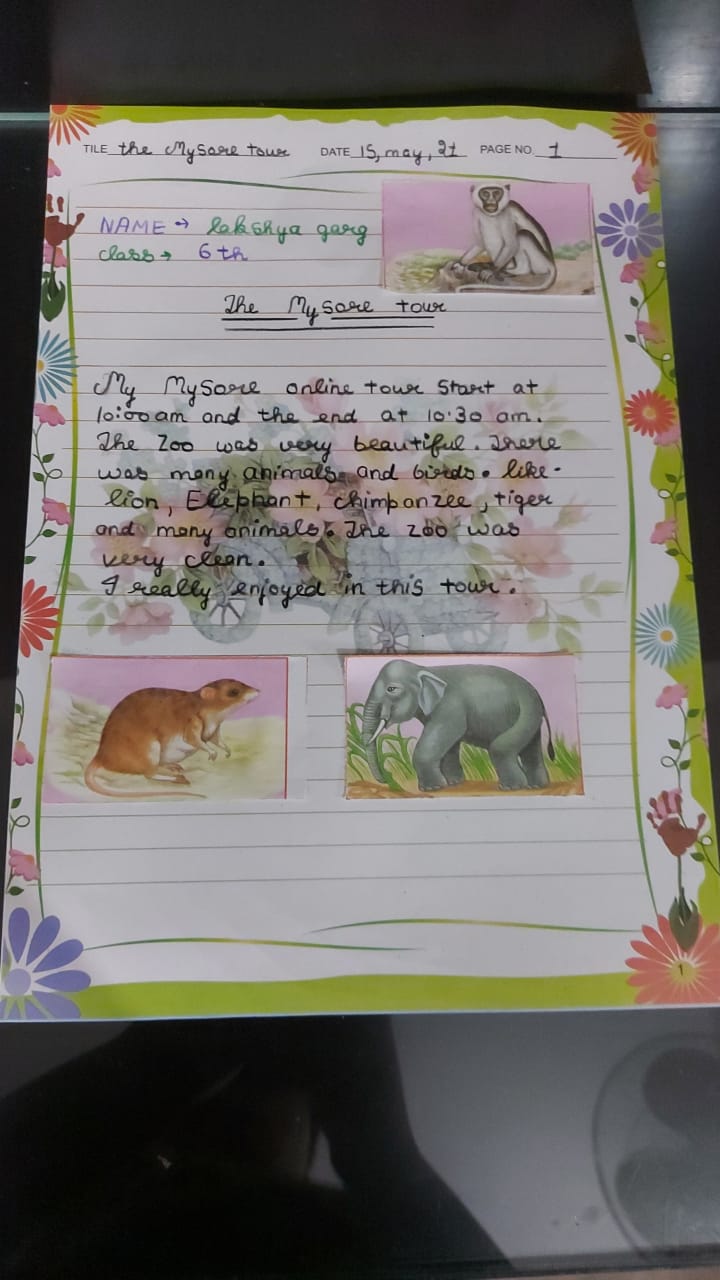 TILE the Mysore tour DATE 15, may, 21 PAGE NO. 1
NAME → lakshya garg
class → 6th
The Mysore tour
My Mysore online tour start at
10:00 am and the end at 10:30 am.
The Zoo was very beautiful. There
was many animals and birds. like-
lion, Elephant, chimpanzee, tiger
and many animals. The zoo was
very clean.
I really enjoyed in this tour.
1